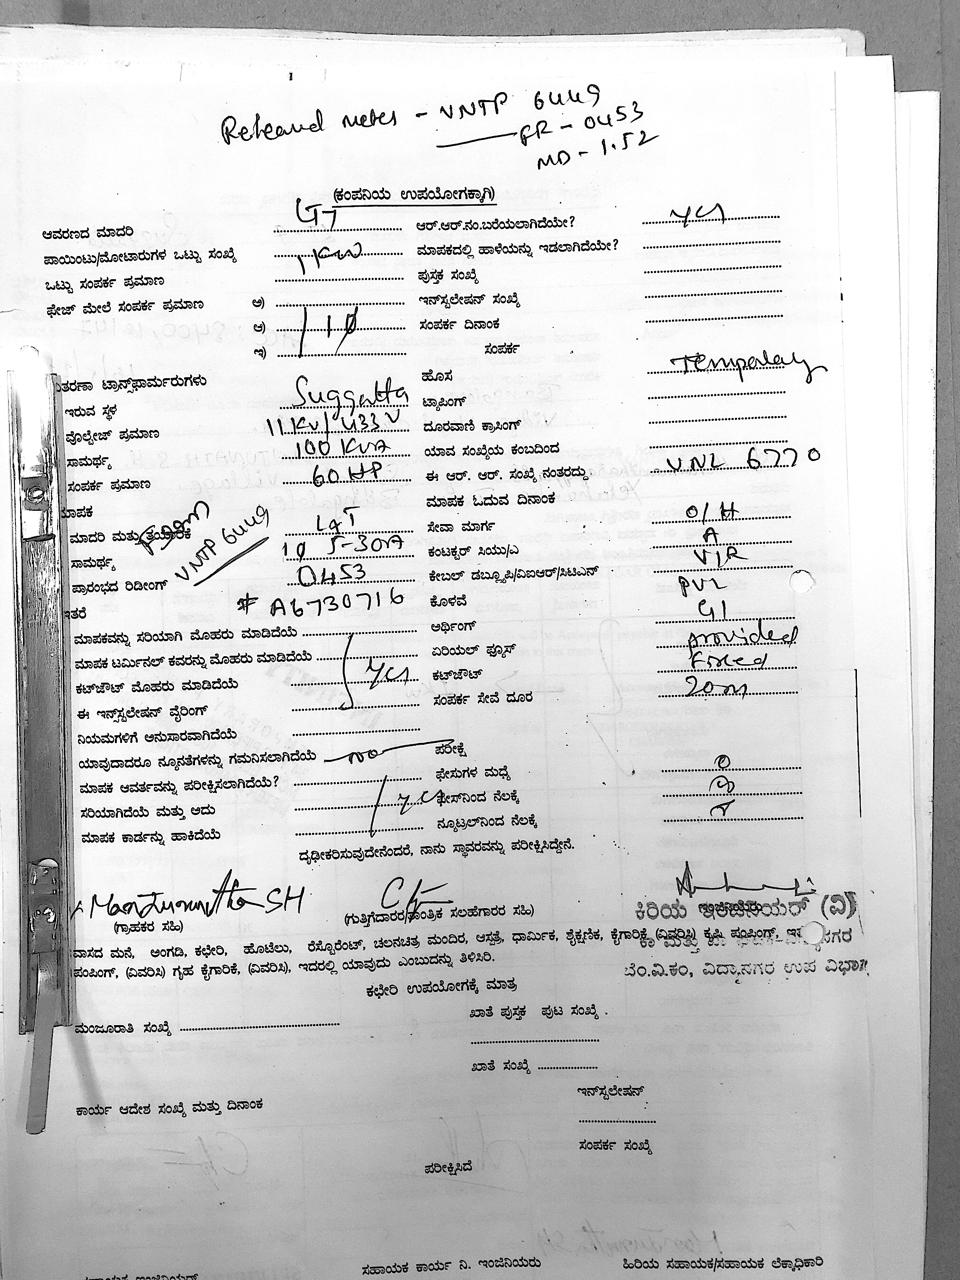 Released meter - VNTP 6449
FR - 0453
MD - 1.52
(ಕಂಪನಿಯ ಉಪಯೋಗಕ್ಕಾಗಿ)
ಆವರಣದ ಮಾದರಿ ಆರ್.ಆರ್.ನಂ.ಬರೆಯಲಾಗಿದೆಯೇ? yes
ಪಾಯಿಂಟು/ಮೋಟಾರುಗಳ ಒಟ್ಟು ಸಂಖ್ಯೆ 1 KW ಮಾಪಕದಲ್ಲಿ ಹಾಳೆಯನ್ನು ಇಡಲಾಗಿದೆಯೇ?
ಒಟ್ಟು ಸಂಪರ್ಕ ಪ್ರಮಾಣ ಪುಸ್ತಕ ಸಂಖ್ಯೆ
ಫೇಜ್ ಮೇಲೆ ಸಂಪರ್ಕ ಪ್ರಮಾಣ ಅ) ಇನ್‌ಸ್ಟಲೇಷನ್ ಸಂಖ್ಯೆ
ಆ) 1Ø ಸಂಪರ್ಕ ದಿನಾಂಕ
ಇ) ಸಂಪರ್ಕ
ವಿತರಣಾ ಟ್ರಾನ್ಸ್‌ಫಾರ್ಮರುಗಳು ಹೊಸ Temporary
ಇರುವ ಸ್ಥಳ Suggatta ಟ್ಯಾಪಿಂಗ್
ವೊಲ್ಟೇಜ್ ಪ್ರಮಾಣ 11 KV/433 V ದೂರವಾಣಿ ಕ್ರಾಸಿಂಗ್
ಸಾಮರ್ಥ್ಯ 100 KVA ಯಾವ ಸಂಖ್ಯೆಯ ಕಂಬದಿಂದ
ಸಂಪರ್ಕ ಪ್ರಮಾಣ 60 HP ಈ ಆರ್. ಆರ್. ಸಂಖ್ಯೆ ನಂತರದ್ದು VNL 6770
ಮಾಪಕ ಮಾಪಕ ಓದುವ ದಿನಾಂಕ
ಮಾದರಿ ಮತ್ತು ತಯಾರಿಕೆ L&T ಸೇವಾ ಮಾರ್ಗ O/H
From VNTP 6449
ಸಾಮರ್ಥ್ಯ 1Ø 5-30A ಕಂಟಕ್ಟರ್ ಸಿಯು/ಎ A
ಪ್ರಾರಂಭದ ರಿಡೀಂಗ್ 0453 ಕೇಬಲ್ ಡಬ್ಲ್ಯೂಪಿ/ವಿಐಆರ್/ಸಿಟಿಎನ್ VIR
ಇತರೆ # A6730716 ಕೊಳವೆ PVC
ಮಾಪಕವನ್ನು ಸರಿಯಾಗಿ ಮೊಹರು ಮಾಡಿದೆಯೆ ಅರ್ಥಿಂಗ್ GI
ಮಾಪಕ ಟರ್ಮಿನಲ್ ಕವರನ್ನು ಮೊಹರು ಮಾಡಿದೆಯೆ yes ಏರಿಯಲ್ ಫ್ಯೂಸ್ provided
ಕಟ್‌ಔಟ್ ಮೊಹರು ಮಾಡಿದೆಯೆ ಕಟ್‌ಔಟ್ Fixed
ಈ ಇನ್ಸ್‌ಟಲೇಷನ್ ವೈರಿಂಗ್ ಸಂಪರ್ಕ ಸೇವೆ ದೂರ 20m
ನಿಯಮಗಳಿಗೆ ಅನುಸಾರವಾಗಿದೆಯೆ
ಯಾವುದಾದರೂ ನ್ಯೂನತೆಗಳನ್ನು ಗಮನಿಸಲಾಗಿದೆಯೆ no ಪರೀಕ್ಷೆ
ಮಾಪಕ ಆವರ್ತವನ್ನು ಪರೀಕ್ಷಿಸಲಾಗಿದೆಯೆ? ಫೇಸುಗಳ ಮಧ್ಯೆ
ಸರಿಯಾಗಿದೆಯೆ ಮತ್ತು ಅದು yes ಫೇಸ್‌ನಿಂದ ನೆಲಕ್ಕೆ
ಮಾಪಕ ಕಾರ್ಡನ್ನು ಹಾಕಿದೆಯೆ ನ್ಯೂಟ್ರಲ್‌ನಿಂದ ನೆಲಕ್ಕೆ
ದೃಢೀಕರಿಸುವುದೇನೆಂದರೆ, ನಾನು ಸ್ಥಾವರವನ್ನು ಪರೀಕ್ಷಿಸಿದ್ದೇನೆ.
Manjunatha SH
(ಗ್ರಾಹಕರ ಸಹಿ) (ಗುತ್ತಿಗೆದಾರರ/ತಾಂತ್ರಿಕ ಸಲಹೆಗಾರರ ಸಹಿ) ಕಿರಿಯ ಇಂಜಿನಿಯರ್ (ವಿ)
ವಾಸದ ಮನೆ, ಅಂಗಡಿ, ಕಛೇರಿ, ಹೊಟೆಲು, ರೆಸ್ಟೊರೆಂಟ್, ಚಲನಚಿತ್ರ ಮಂದಿರ, ಆಸ್ಪತ್ರೆ, ಧಾರ್ಮಿಕ, ಶೈಕ್ಷಣಿಕ, ಕೈಗಾರಿಕೆ (ವಿವರಿಸಿ) ಕೃಷಿ ಪಂಪಿಂಗ್,
ಪಂಪಿಂಗ್, (ವಿವರಿಸಿ) ಗೃಹ ಕೈಗಾರಿಕೆ, (ವಿವರಿಸಿ), ಇದರಲ್ಲಿ ಯಾವುದು ಎಂಬುದನ್ನು ತಿಳಿಸಿರಿ.
ಬೆಂ.ವಿ.ಕಂ, ವಿದ್ಯಾನಗರ ಉಪ ವಿಭಾಗ
ಕಛೇರಿ ಉಪಯೋಗಕ್ಕೆ ಮಾತ್ರ
ಮಂಜೂರಾತಿ ಸಂಖ್ಯೆ ಖಾತೆ ಪುಸ್ತಕ ಪುಟ ಸಂಖ್ಯೆ .
ಖಾತೆ ಸಂಖ್ಯೆ
ಕಾರ್ಯ ಆದೇಶ ಸಂಖ್ಯೆ ಮತ್ತು ದಿನಾಂಕ ಇನ್‌ಸ್ಟಲೇಷನ್
ಸಂಪರ್ಕ ಸಂಖ್ಯೆ
ಪರೀಕ್ಷಿಸಿದೆ
ಸಹಾಯಕ ಇಂಜಿನಿಯರ್ ಸಹಾಯಕ ಕಾರ್ಯ ನಿ. ಇಂಜಿನಿಯರು ಹಿರಿಯ ಸಹಾಯಕ/ಸಹಾಯಕ ಲೆಕ್ಕಾಧಿಕಾರಿ